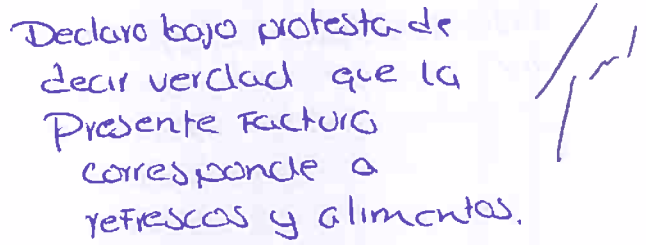 Declaro bajo protesta de
decir verdad que la
Presente Factura
corresponde a
refrescos y alimentos.